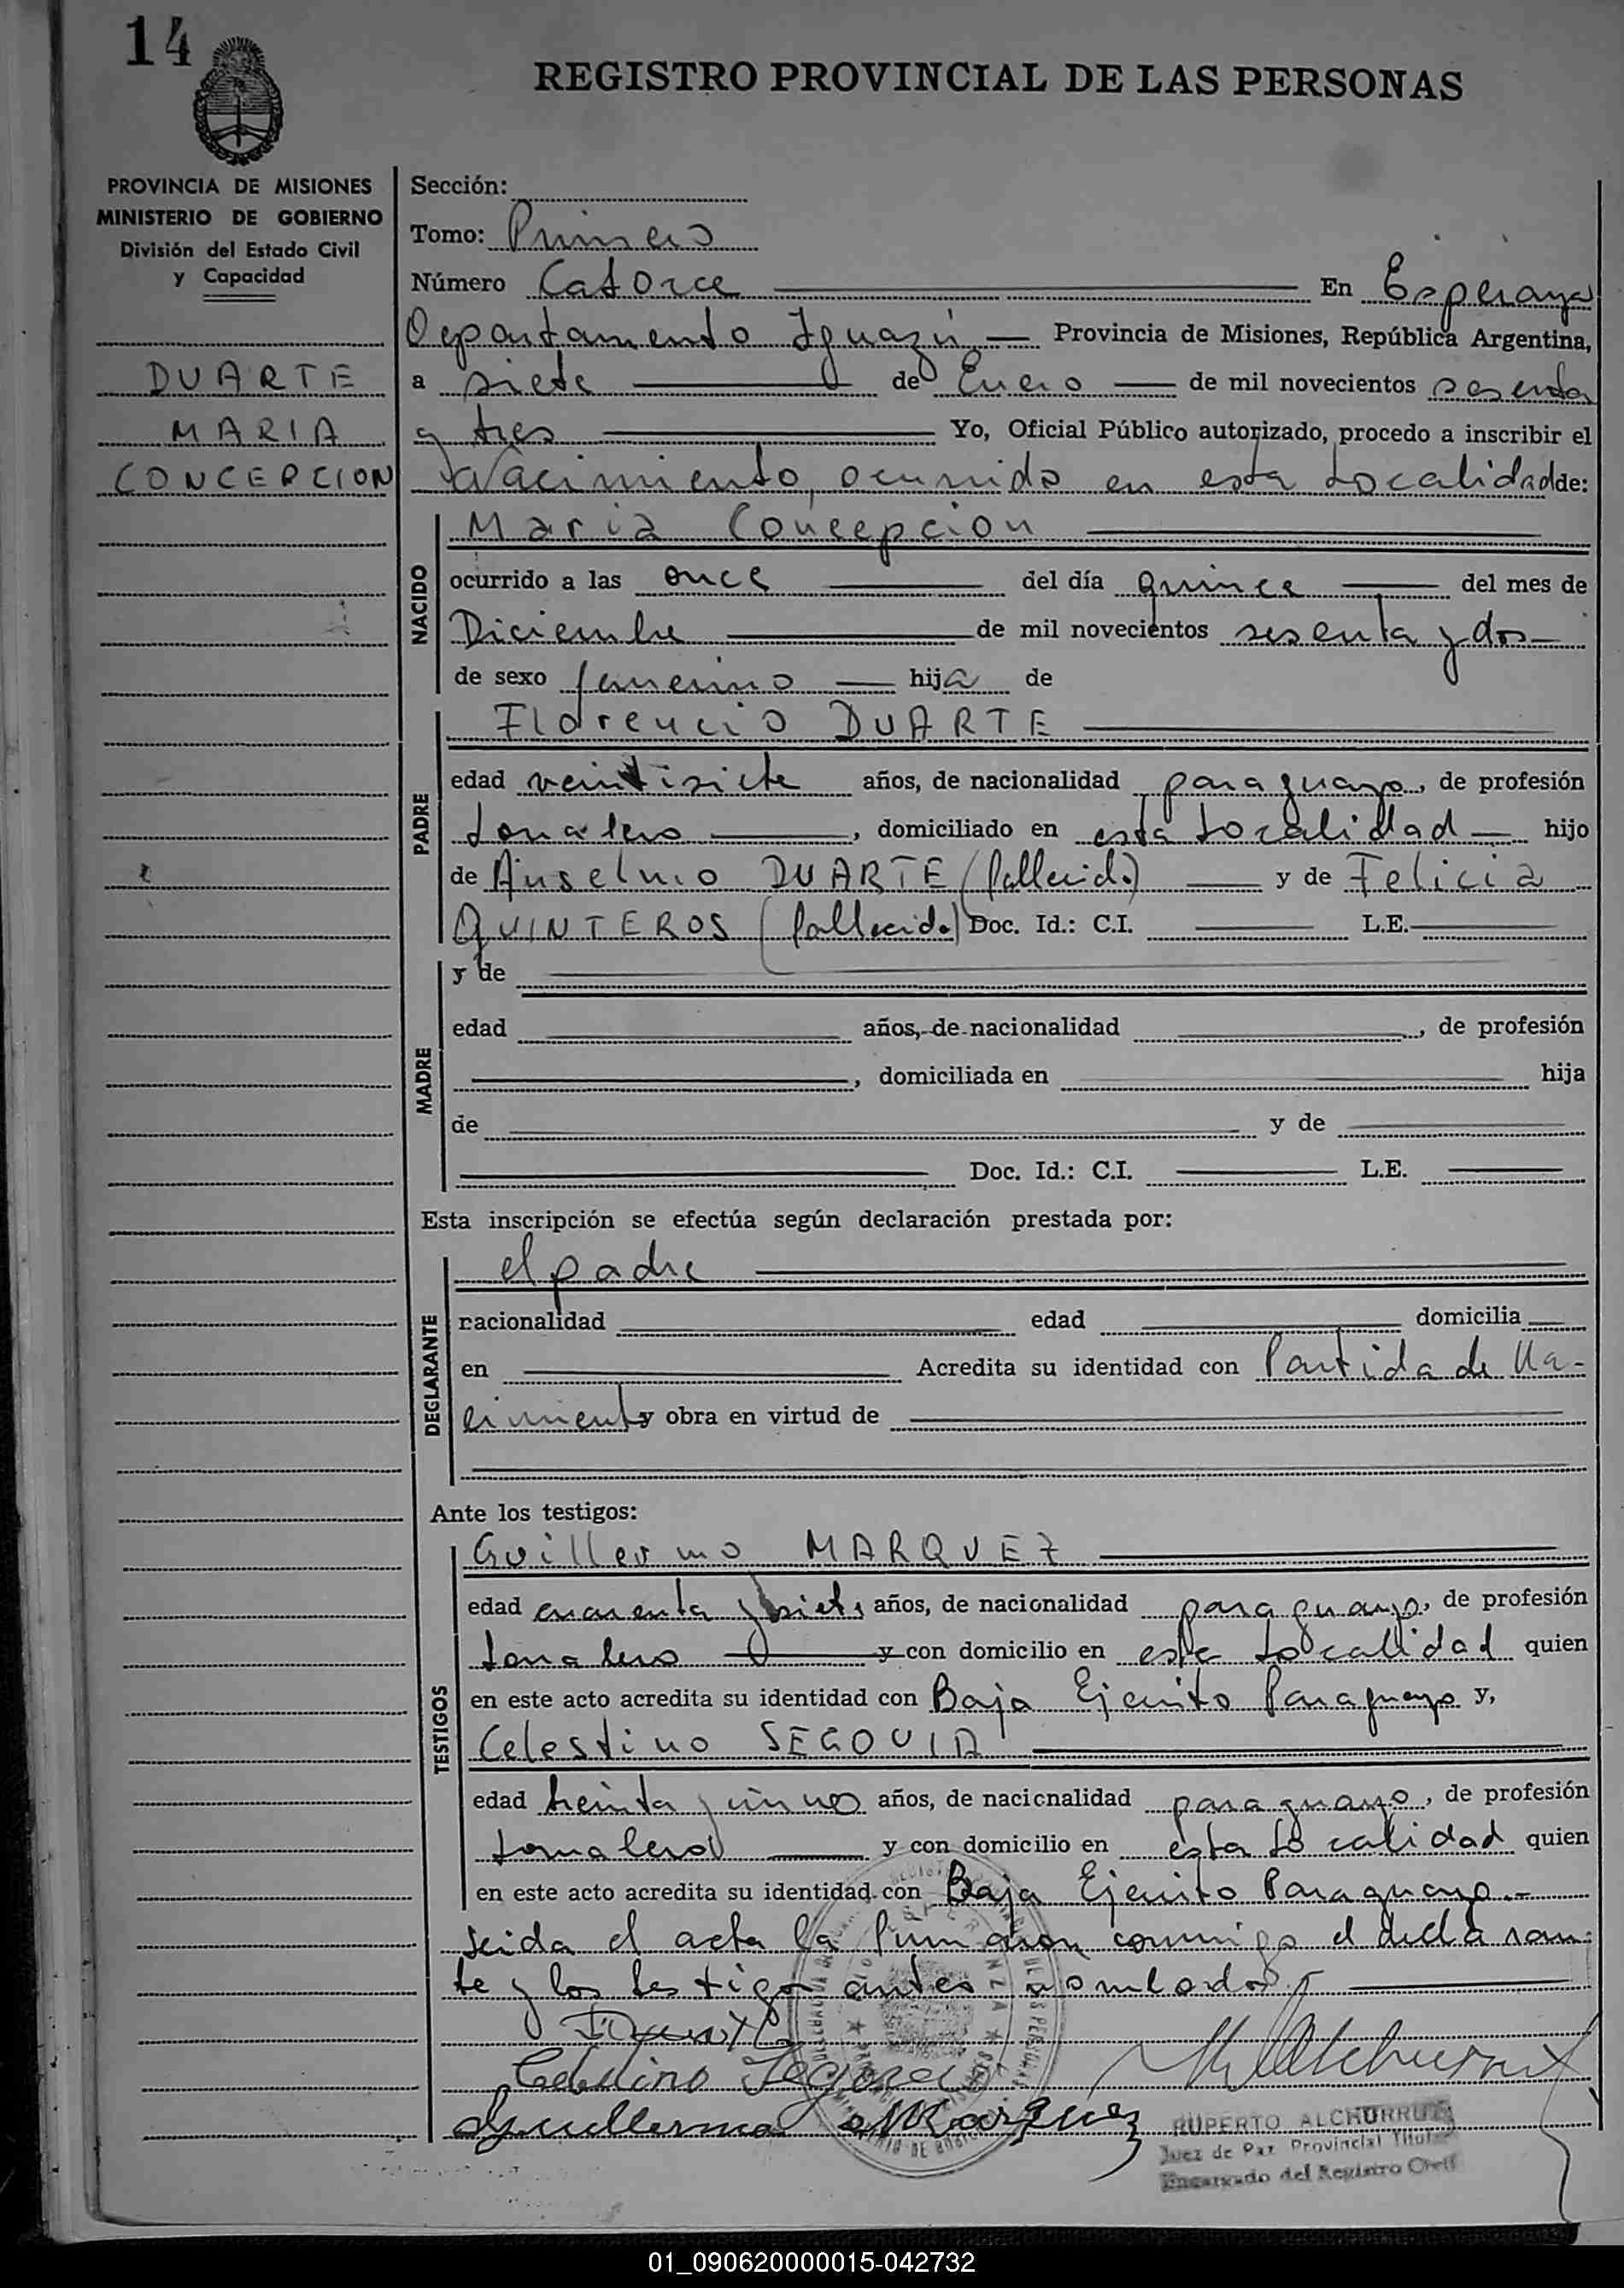 14
REGISTRO PROVINCIAL DE LAS PERSONAS
PROVINCIA DE MISIONES
MINISTERIO DE GOBIERNO
División del Estado Civil
y Capacidad
DUARTE
MARIA
CONCEPCION
Sección:
Tomo: Primero
Número Catorce En Esperanza
Departamento Iguazú Provincia de Misiones, República Argentina,
a siete de Enero de mil novecientos sesenta
y tres Yo, Oficial Público autorizado, procedo a inscribir el
Nacimiento, ocurrido en esta Localidad de:
NACIDO
Maria Concepcion
ocurrido a las once del día quince del mes de
Diciembre de mil novecientos sesenta y dos
de sexo femenino hija de
PADRE
Florencio DUARTE
edad veintisiete años, de nacionalidad paraguayo, de profesión
Jornalero, domiciliado en esta Localidad hijo
de Anselmo DUARTE (fallecido) y de Felicia
QUINTEROS (fallecida) Doc. Id.: C.I. L.E.
MADRE
y de
edad años, de nacionalidad , de profesión
, domiciliada en hija
de y de
Doc. Id.: C.I. L.E.
Esta inscripción se efectúa según declaración prestada por:
DECLARANTE
el padre
nacionalidad edad domicilia
en Acredita su identidad con Partida de Na-
cimiento y obra en virtud de
Ante los testigos:
TESTIGOS
Guillermo MARQUEZ
edad cuarenta y siete años, de nacionalidad paraguayo, de profesión
Jornalero y con domicilio en esta Localidad quien
en este acto acredita su identidad con Baja Ejercito Paraguayo y,
Celestino SEGOVIA
edad treinta y cinco años, de nacionalidad paraguayo, de profesión
Jornalero y con domicilio en esta Localidad quien
en este acto acredita su identidad con Baja Ejercito Paraguayo.-
Leida el acta la firmaron conmigo el declaran-
te y los testigos antes nombrados
Guillermo Marquez
RUPERTO ALCHURRUT
Juez de Paz Provincial Titular
Encargado del Registro Civil
01_090620000015-042732